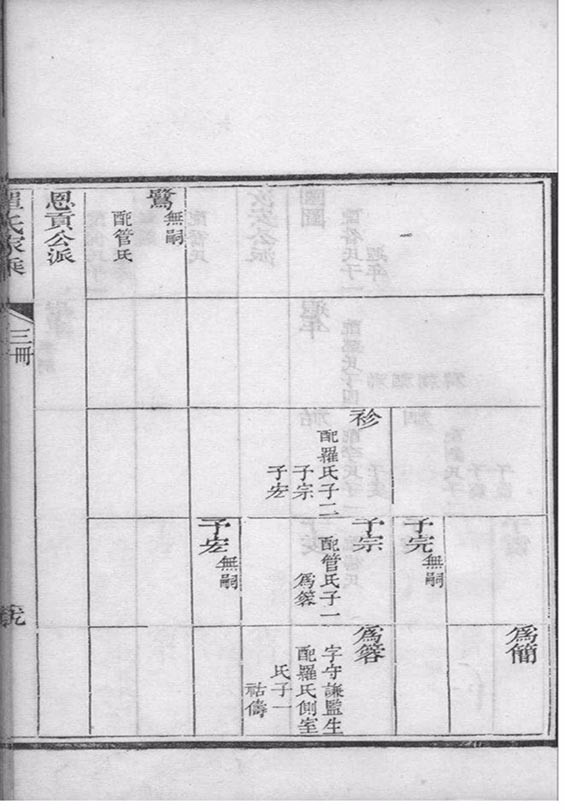 鷺
無嗣
配管氏
袗
配羅氏子二
子宗
子宏
子完
無嗣
子宗
配管氏子一
爲
子宏
無嗣
爲簡
爲
字守謙監生
配羅氏側室
氏子一
儔
恩貢公派
氏家乘
三冊